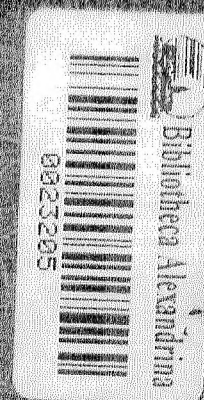 Bibliotheca Alexandrina
0023205